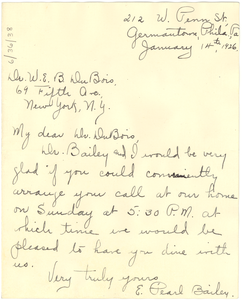 212 W. Penn St.
Germantown, Phila, Pa
January 14th, 1926.
Dr. W. E. B. Du Bois,
69 Fifth Ave.,
New York, N.Y.
My dear Dr. Du Bois,
Dr. Bailey and I would be very
glad if you could conveniently
arrange your call at our home
on Sunday at 5.30 P.M. at
which time we would be
pleased to have you dine with
us.
Very truly yours
E. Pearl Bailey.